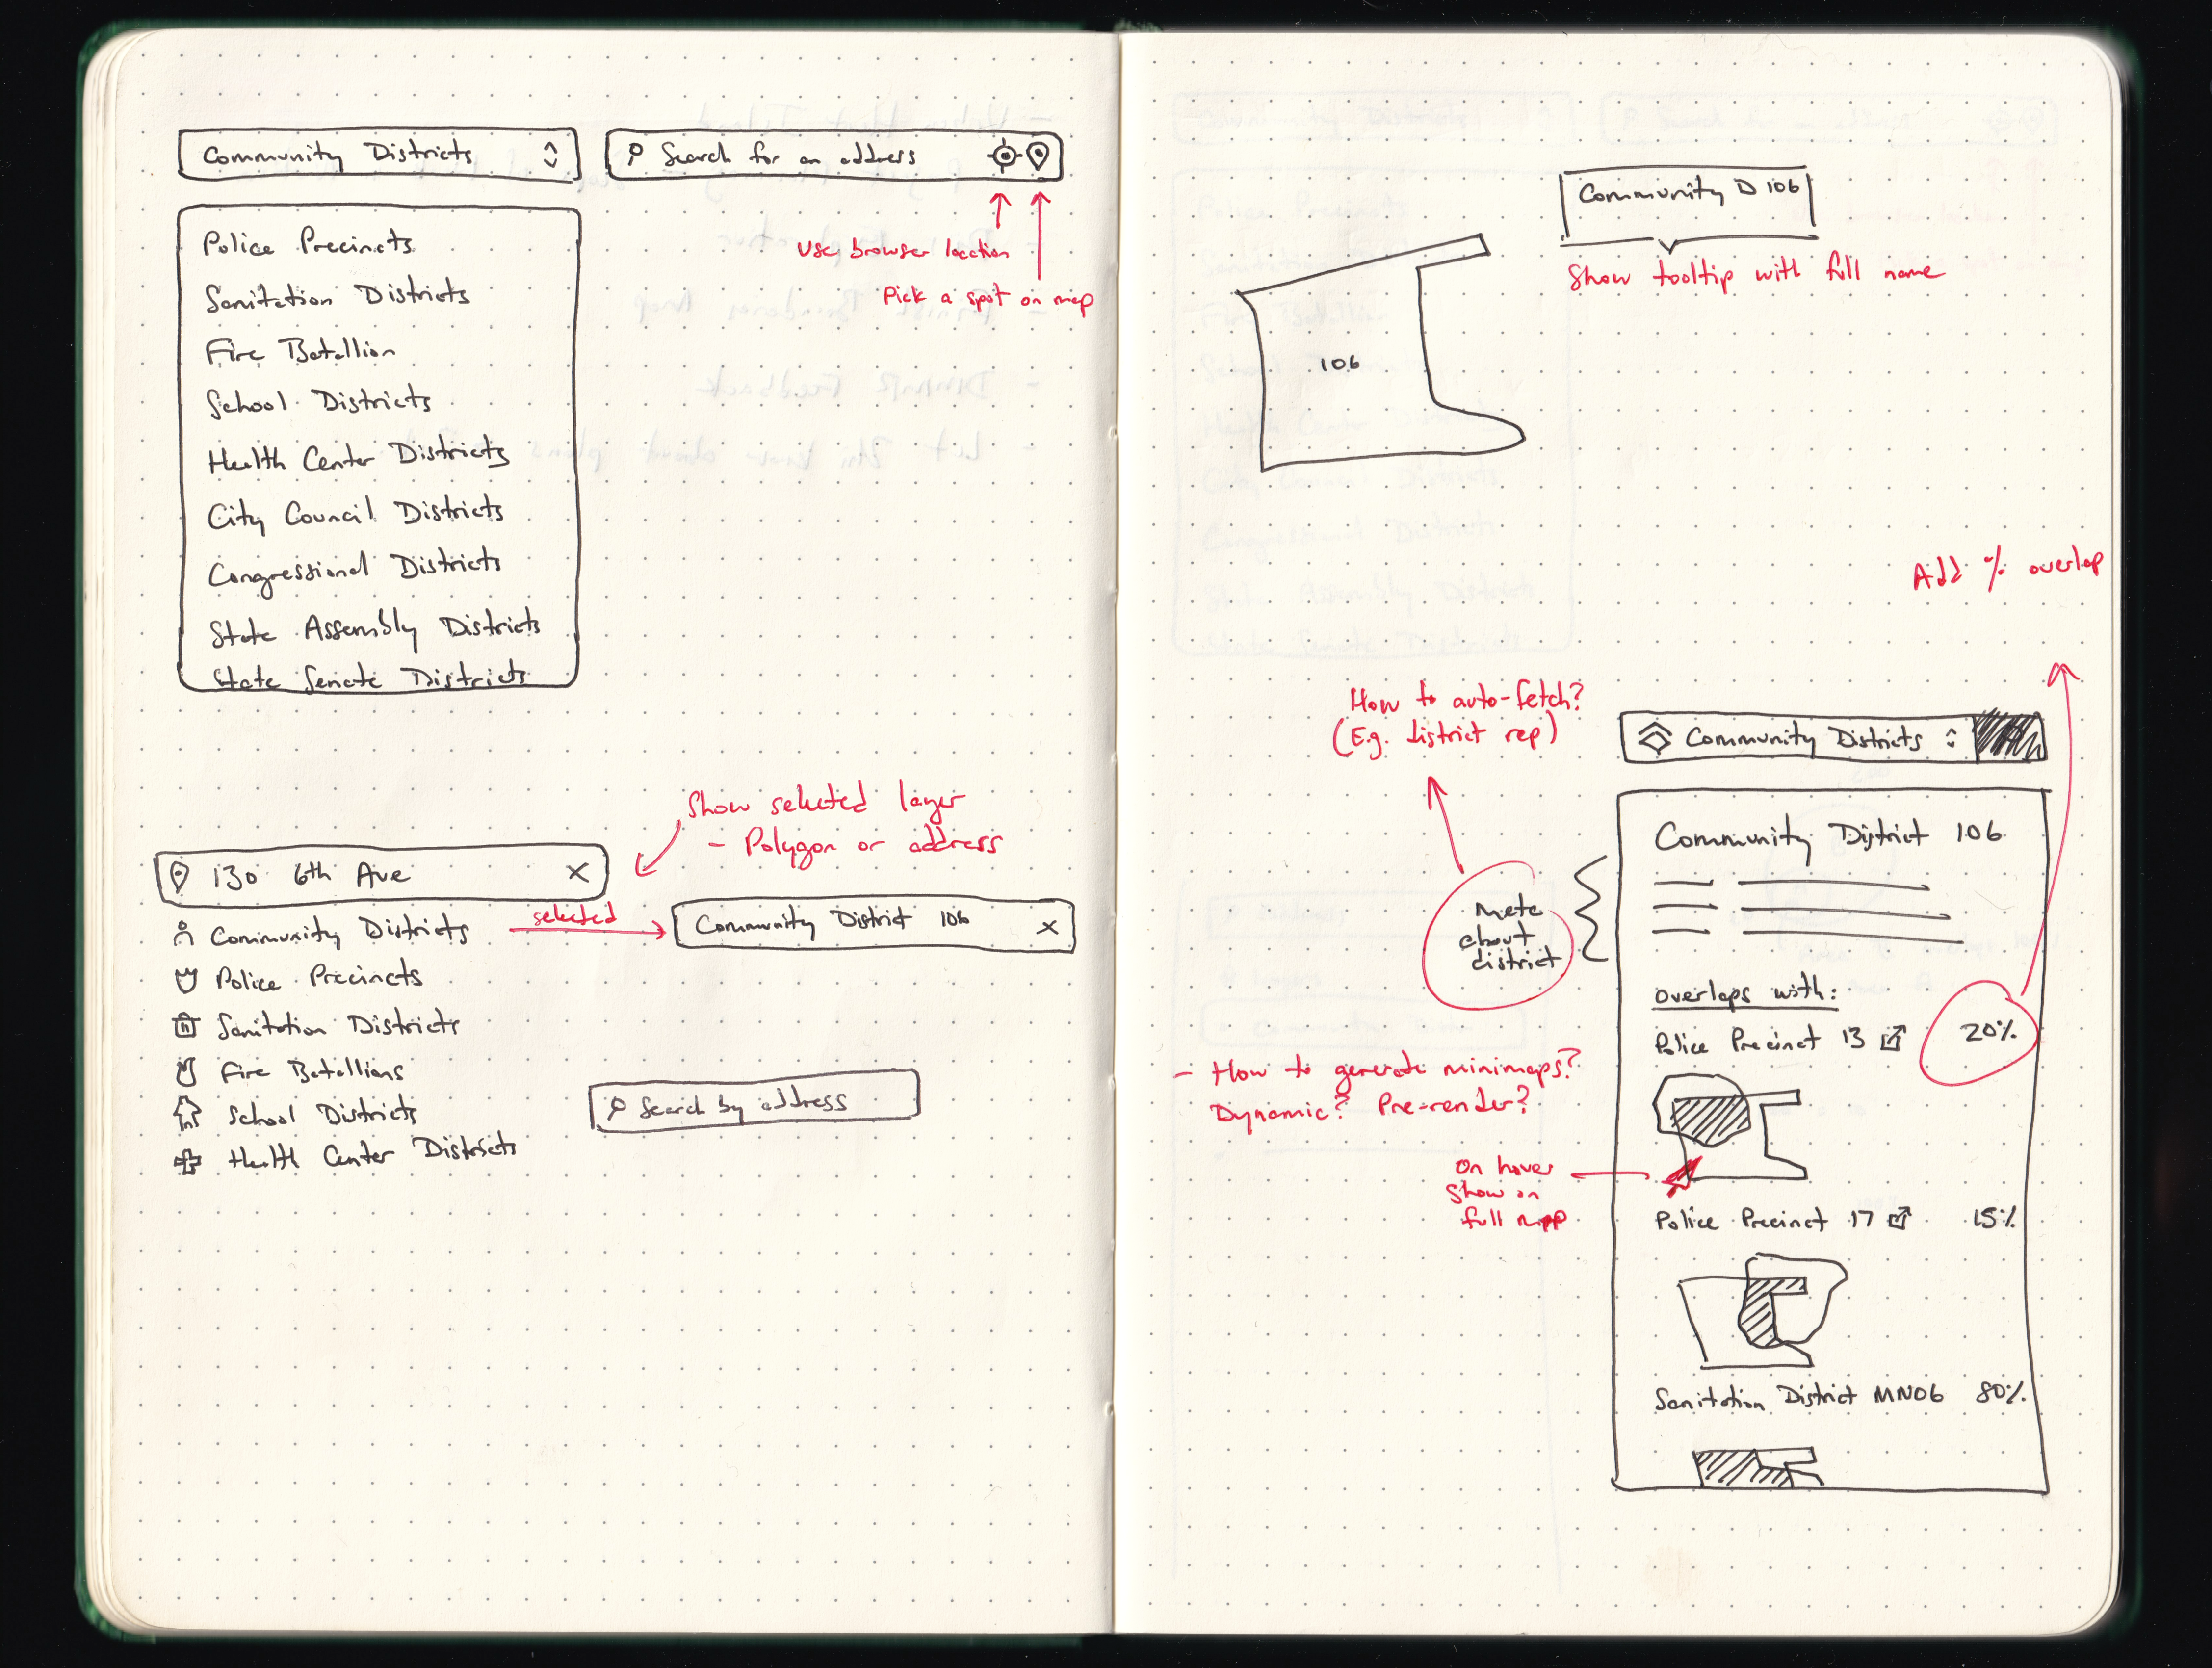 Community Districts
Search for an address
Use browser location
Pick a spot on map
Police Precincts
Sanitation Districts
Fire Batallion
School Districts
Health Center Districts
City Council Districts
Congressional Districts
State Assembly Districts
State Senate Districts
Show selected layer
- Polygon or address
130 6th Ave X
Community Districts
selected
Community District 106 X
Police Precincts
Sanitation Districts
Fire Batallions
School Districts
Health Center Districts
Search by address
Community D 106
Show tooltip with full name
106
Add % overlap
How to auto-fetch?
(E.g. district rep)
Community Districts
Community District 106
meta
about
district
overlaps with:
Police Precinct 13 20%
- How to generate minimaps?
Dynamic? Pre-render?
On hover
Show on
full map
Police Precinct 17 15%
Sanitation District MN06 80%